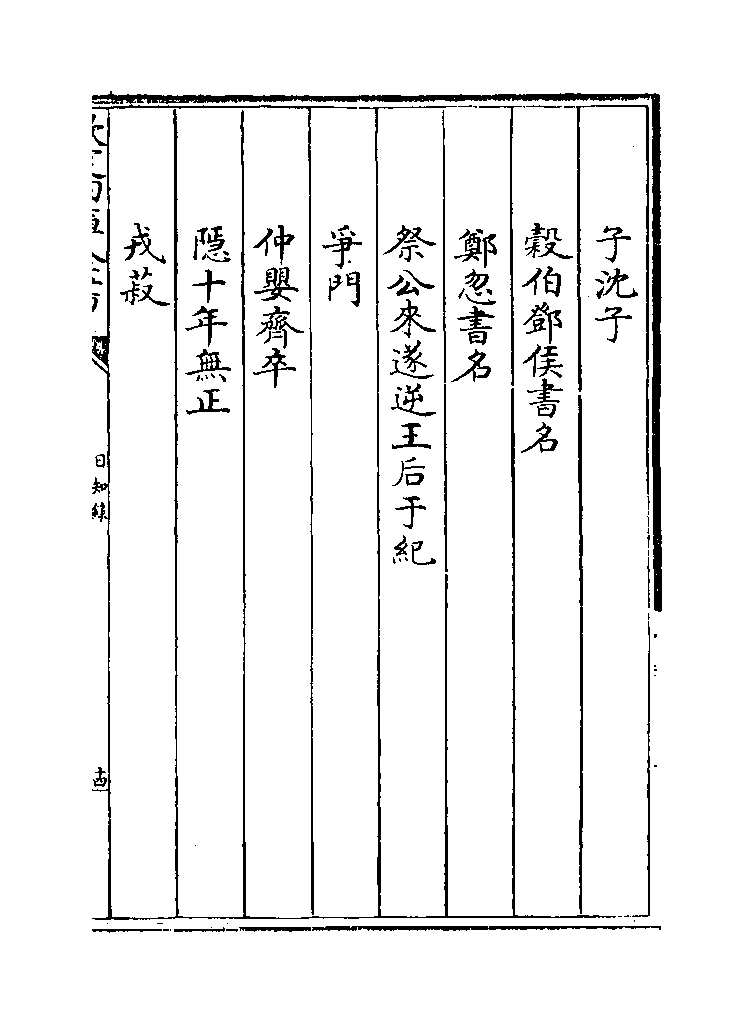 子沈子
穀伯鄧侯書名
鄭忽書名
祭公來遂逆王后于紀
爭門
仲嬰齊卒
隱十年無正
戎菽
日知錄
十四